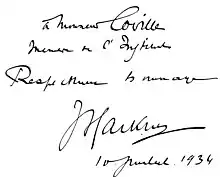 à Monsieur Coville
Membre de l'Institut
Respectueux hommage
10 juillet 1934